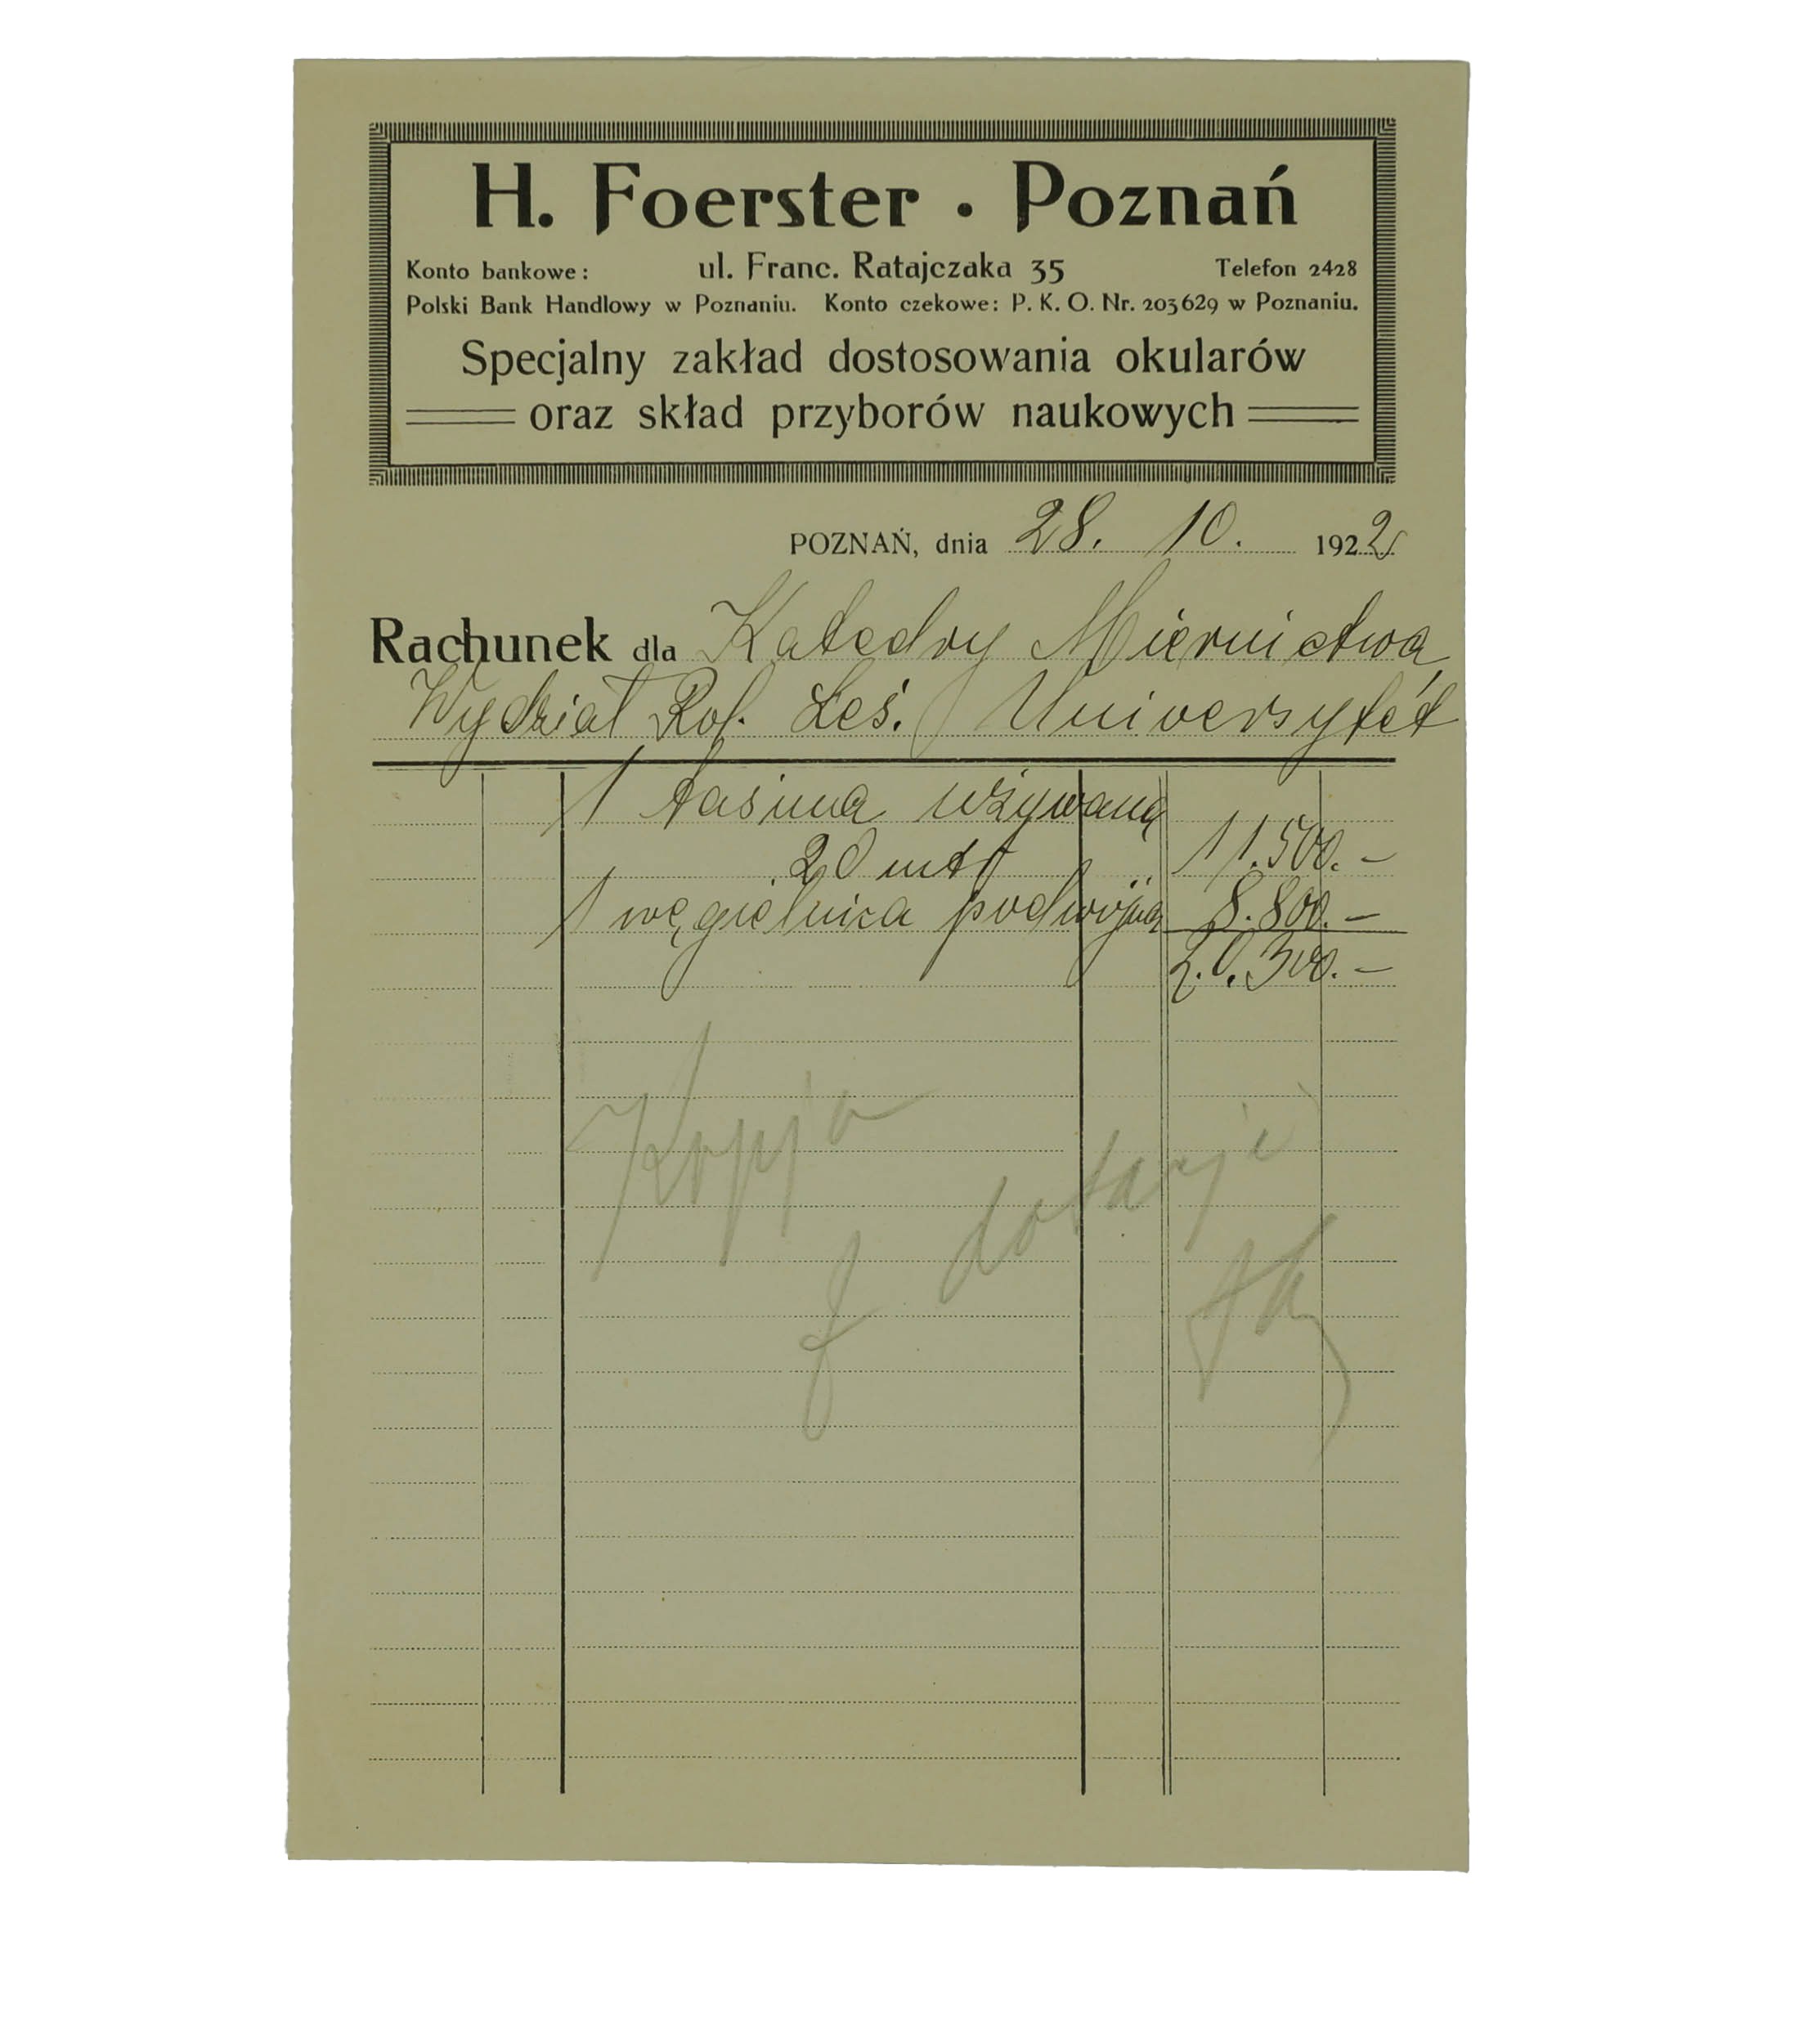 H. Foerster • Poznań
Konto bankowe: ul. Franc. Ratajczaka 35 Telefon 2428
Polski Bank Handlowy w Poznaniu. Konto czekowe: P. K. O. Nr. 203629 w Poznaniu.
Specjalny zakład dostosowania okularów
oraz skład przyborów naukowych
POZNAŃ, dnia 28. 10. 1922
Rachunek dla Katedry Miernictwa
Wydział Rol. Leś. Uniwersytet
1 taśma używana
20 mtr 11.500.-
1 węgielnica podwójna 8.800.-
20.300.-
Kopja
dotacji